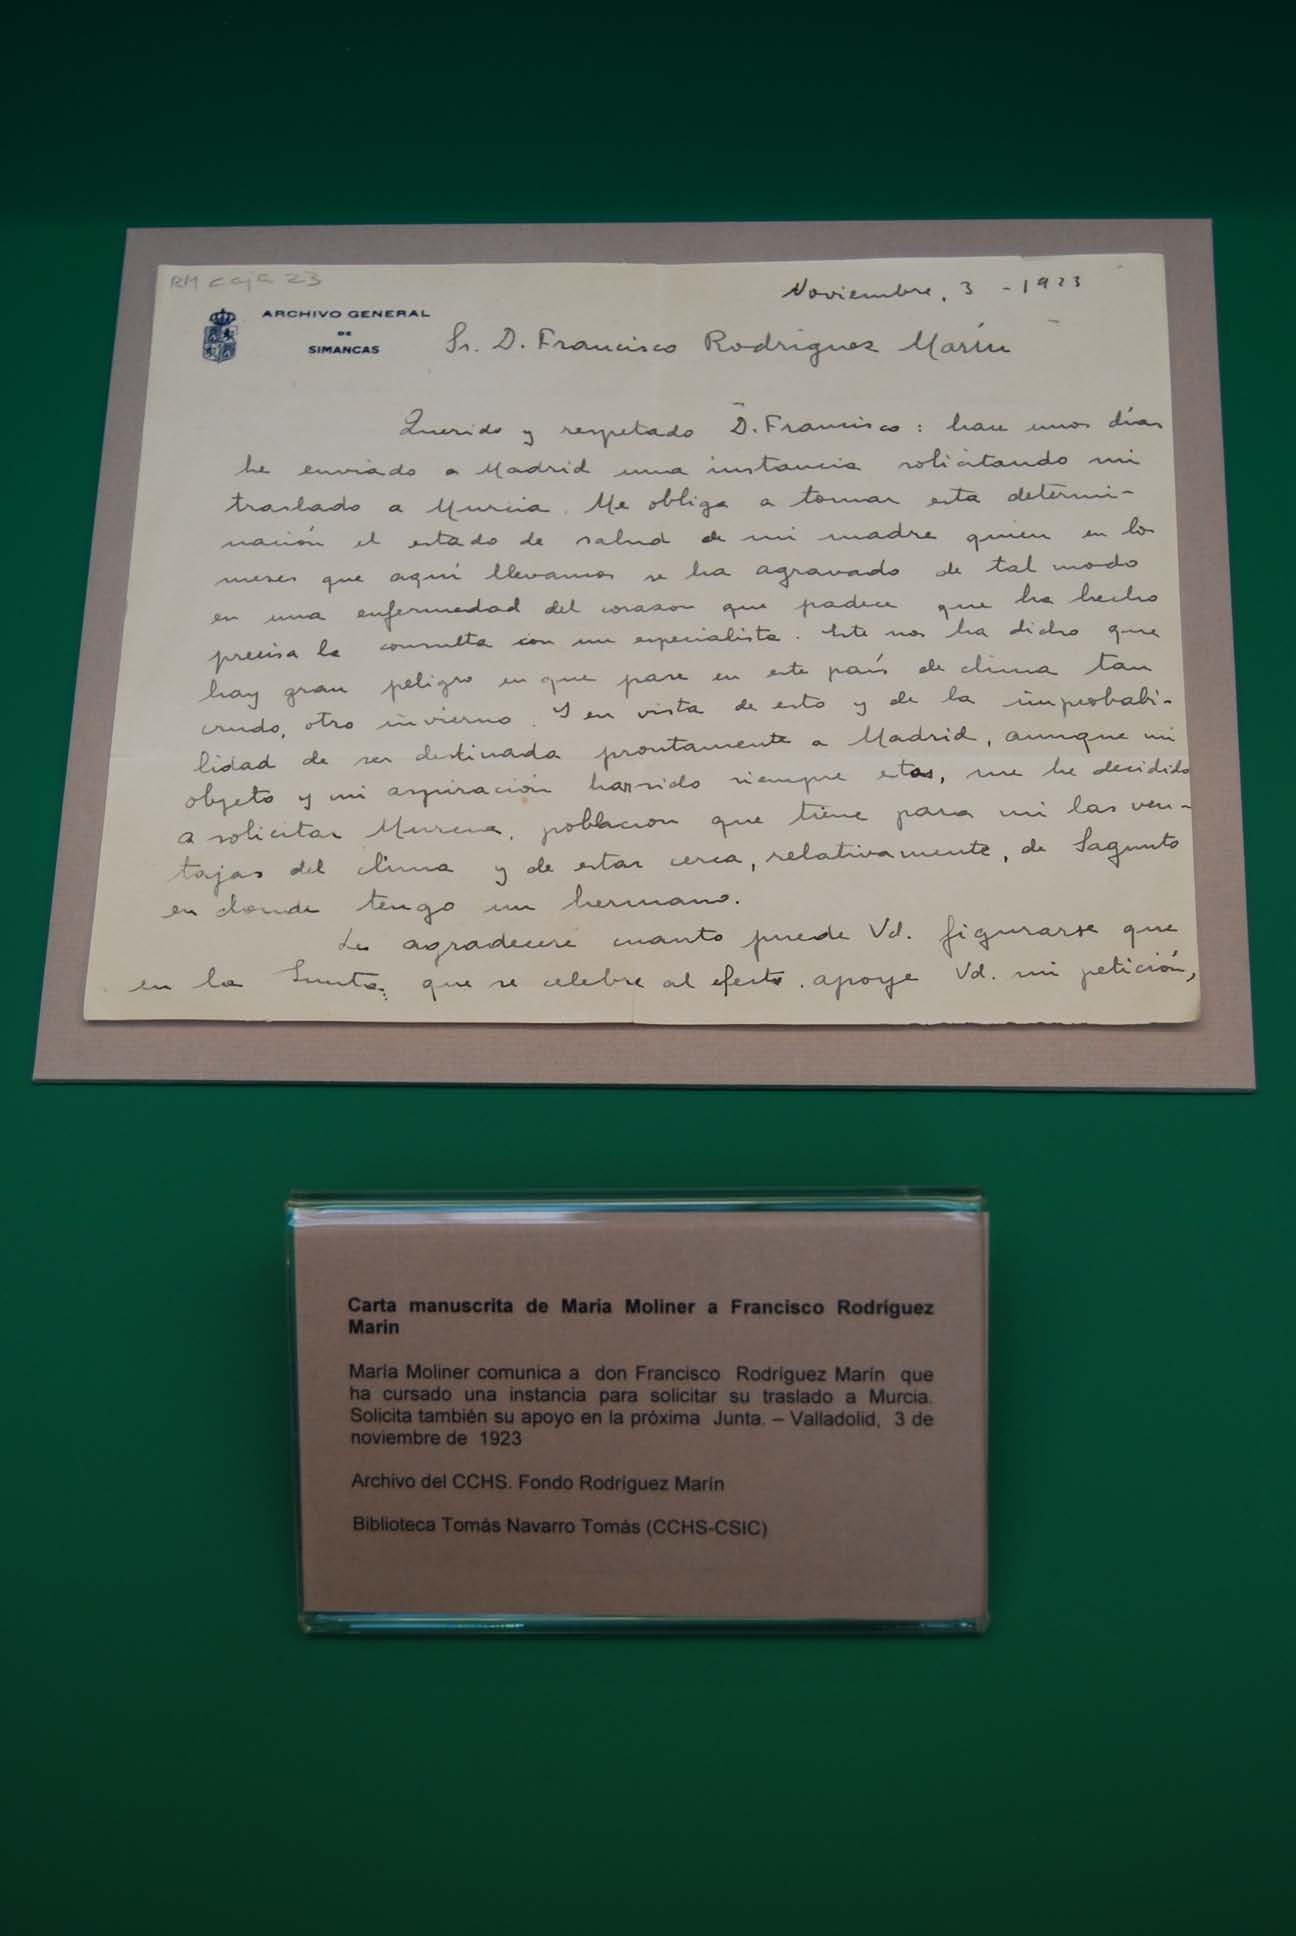 RM caja 23
Noviembre, 3 - 1923
ARCHIVO GENERAL
DE
SIMANCAS
Sr. D. Francisco Rodriguez Marín
Querido y respetado D. Francisco: hace unos días
he enviado a Madrid una instancia solicitando mi
traslado a Murcia. Me obliga a tomar esta determi-
nación el estado de salud de mi madre quien en los
meses que aquí llevamos se ha agravado de tal modo
en una enfermedad del corazon que padece que ha hecho
precisa la consulta con un especialista. Este nos ha dicho que
hay gran peligro en que pase en este país de clima tan
crudo, otro invierno. Y en vista de esto y de la improbabi-
lidad de ser destinada prontamente a Madrid, aunque mi
objeto y mi aspiración han sido siempre estos, me he decidido
a solicitar Murcia, poblacion que tiene para mi las ven-
tajas del clima y de estar cerca, relativamente, de Sagunto
en donde tengo un hermano.
Le agradeceré cuanto puede Vd. figurarse que
en la Junta que se celebre al efecto apoye Vd. mi petición,
Carta manuscrita de María Moliner a Francisco Rodríguez
Marín
María Moliner comunica a don Francisco Rodríguez Marín que
ha cursado una instancia para solicitar su traslado a Murcia.
Solicita también su apoyo en la próxima Junta. – Valladolid, 3 de
noviembre de 1923
Archivo del CCHS. Fondo Rodríguez Marín
Biblioteca Tomás Navarro Tomás (CCHS-CSIC)